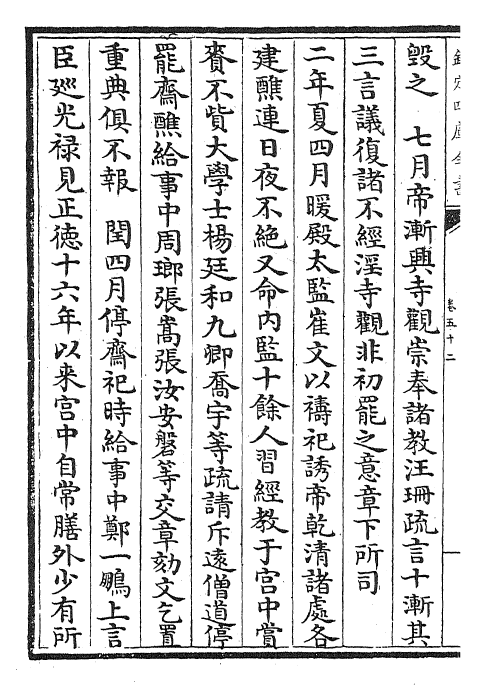 欽定四庫全書
卷五十二
毀之　七月帝漸興寺觀崇奉諸教汪珊疏言十漸其
三言議復諸不經淫寺觀非初罷之意章下所司
二年夏四月暖殿太監崔文以禱祀誘帝乾清諸處各
建醮連日夜不絕又命内監十餘人習經教于宫中賞
賚不貲大學士楊廷和九卿喬宇等疏請斥遠僧道停
罷齋醮給事中周瑯張嵩張汝安磐等交章劾文乞置
重典俱不報　閏四月停齋祀時給事中鄭一鵬上言
臣廵光禄見正徳十六年以来宫中自常膳外少有所